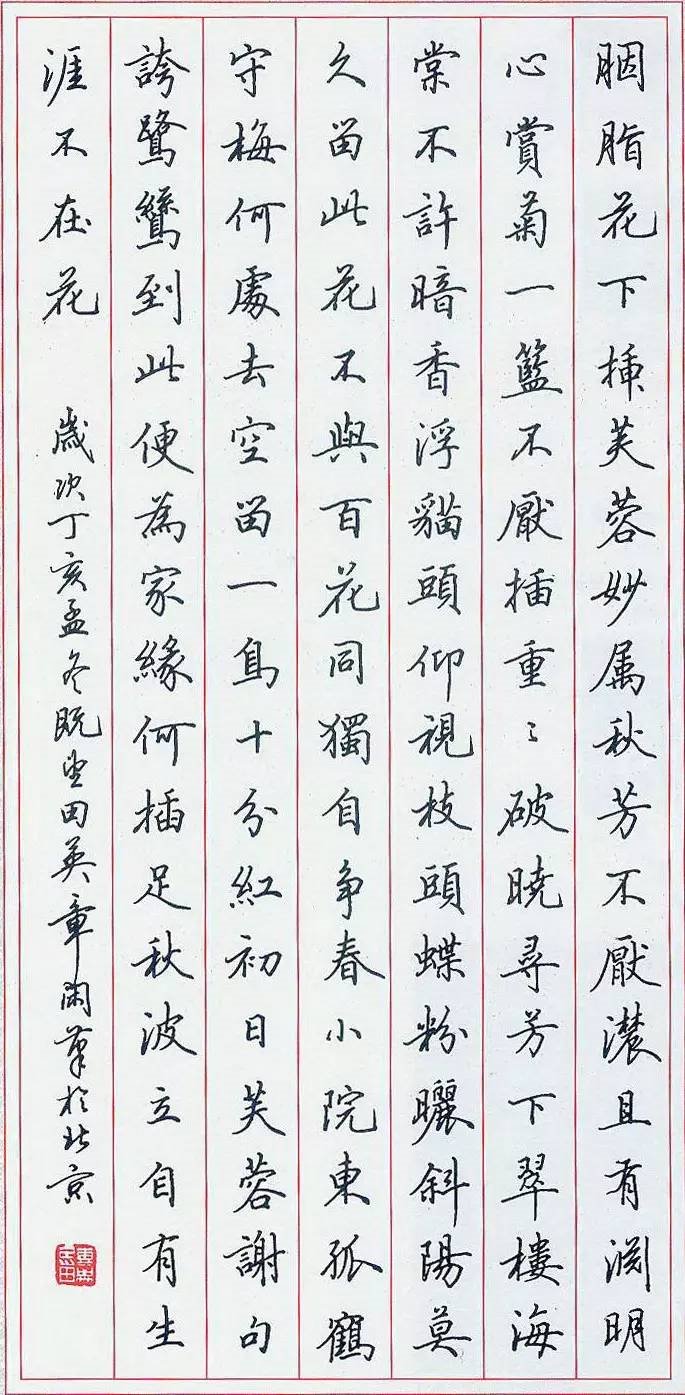 胭脂花下挿芙蓉妙属秋芳不厭濃且有渊明
心賞菊一籃不厭插重〻破曉尋芳下翠樓海
棠不許暗香浮貓頭仰視枝頭蝶粉曬斜陽莫
久留此花不與百花同獨自争春小院東孤鶴
守梅何處去空留一鳥十分紅初日芙蓉謝句
誇鷺鷥到此便為家緣何插足秋波立自有生
涯不在花 歲次丁亥孟冬既望田英章閑筆於北京